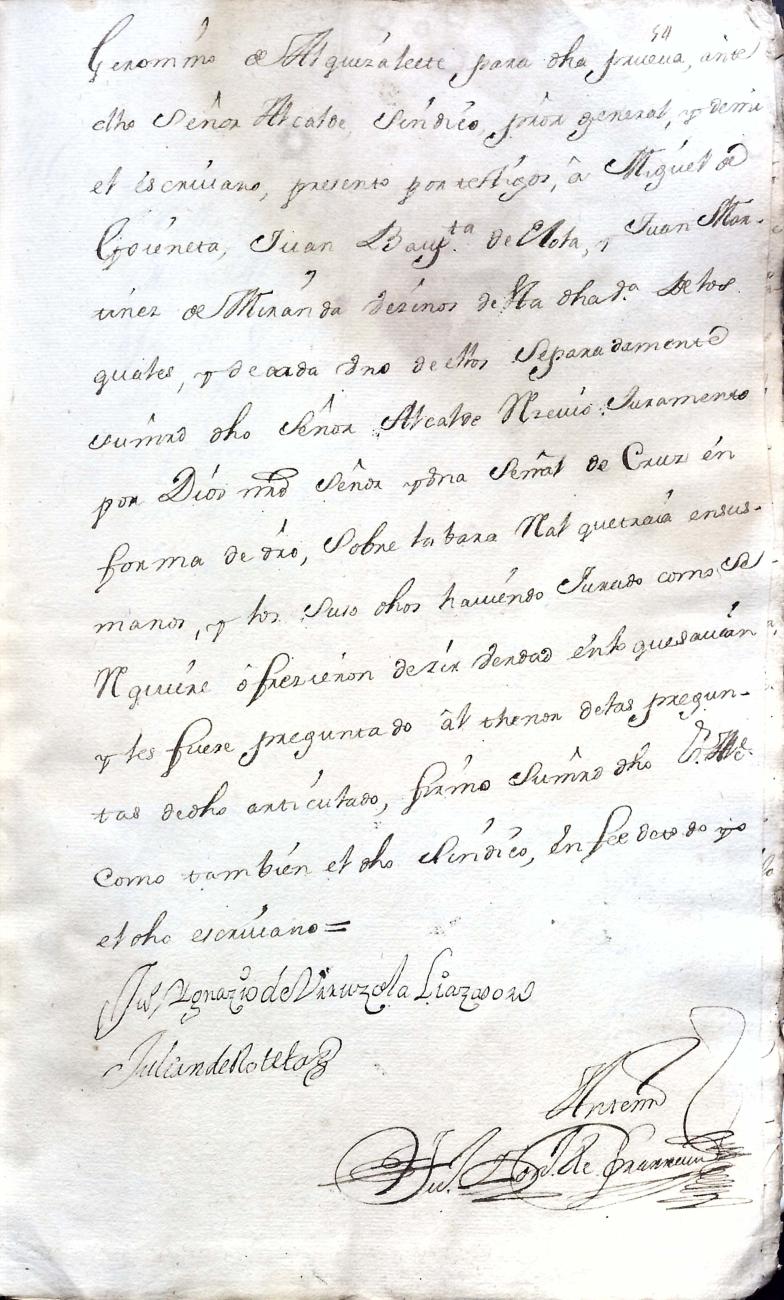 54
Geronimo de Alquizalete para dha prueva, ante
dho Señor Alcalde, Sindico prõr general, y demi
el escrivano, presento por testigos, â Miguel de
Goieneta, Juan Bauptta de Elola, y Juan Mar-
tinez de Miranda vezinos de esta dha va de los
quales, y de cada vno de ellos Separadamente
sumrd dho Señor Alcalde Rrecivio Juramento
por Dios nro Señor y vna Señal de Cruz en
forma de dro, Sobre la vara Real que traia ensus
manos, y los Suso dhos haviendo Jurado como Se
Rrequiere ofrezieron dezir verdad enlo que savian
y les fuere preguntado âl thenor delas pregun-
tas dedho articulado, firmo Sumrd dho
Como tambien el dho Sindico, en fee detodo yo
el dho escrivano =
Ju Ignazio de Vrruzola
Julian de Roteta
Antemi